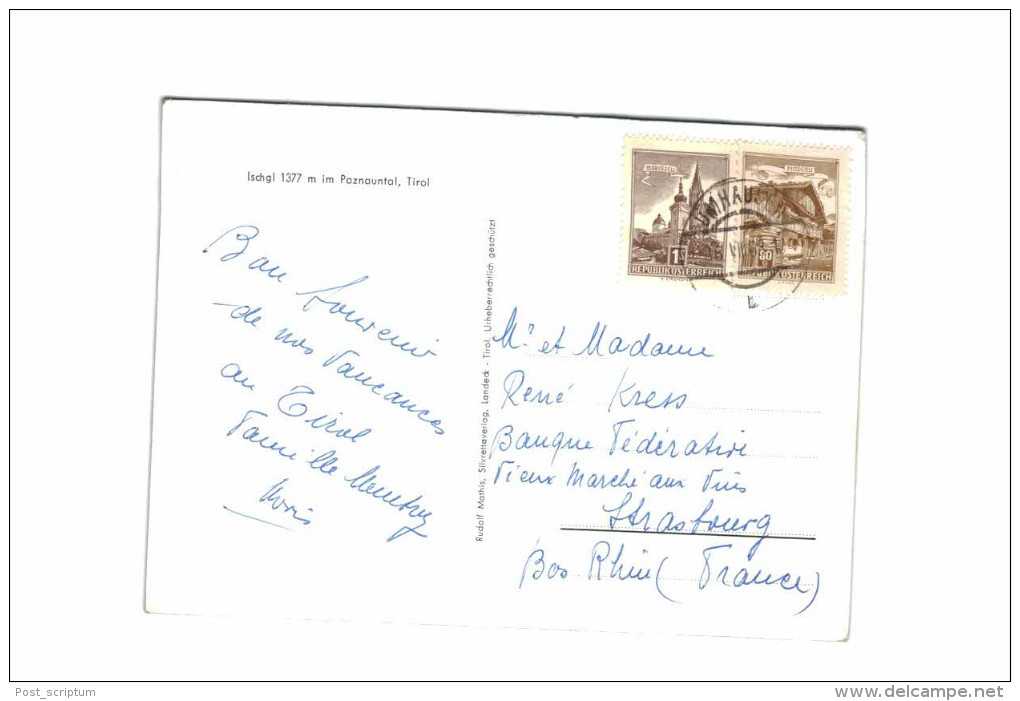 Ischgl 1377 m im Paznauntal, Tirol
Bon Souvenir
de nos Vancances
au Tirol
Famille
Rudolf Mathis, Silvrettaverlag, Landeck - Tirol, Urheberrechtlich geschützt
MARIAZELL
1
REPUBLIK ÖSTERREICH
80
REPUBLIK ÖSTERREICH
UMHAUSEN
Mr et Madame
René Kress
Banque Fédérative
Vieux Marché aux Vins
Strasbourg
Bas Rhin (France)
Post_scriptum
www.delcampe.net